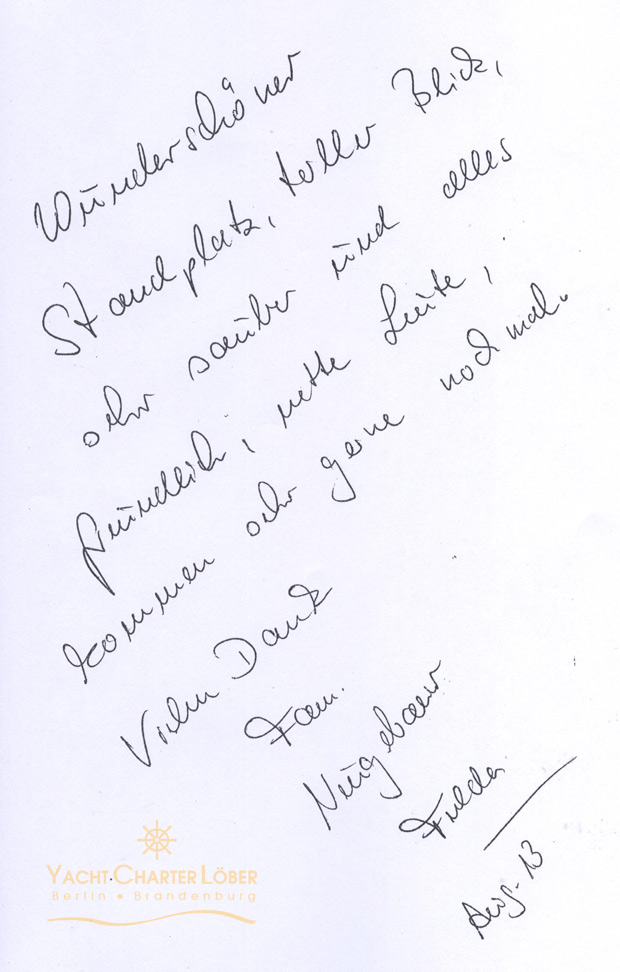 Wunderschöner
Standplatz, toller Blick,
sehr sauber und alles
freundlich, nette Leute,
kommen sehr gerne nochmal.
Vielen Dank
Fam.
Neugebauer
Fulda
Aug. 13
YACHT-CHARTER LÖBER
Berlin • Brandenburg